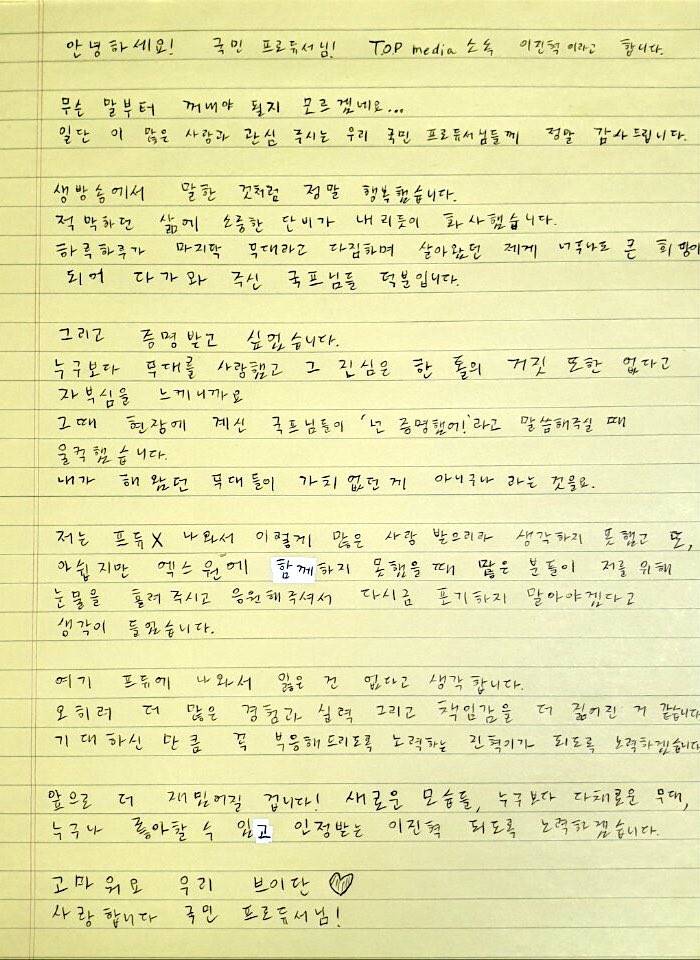 안녕하세요! 국민 프로듀서님! T.O.P media 소속 이진혁이라고 합니다.
무슨 말부터 꺼내야 될지 모르겠네요...
일단 이 많은 사랑과 관심 주시는 우리 국민 프로듀서님들께 정말 감사드립니다.
생방송에서 말한 것처럼 정말 행복했습니다.
적막하던 삶에 소중한 단비가 내리듯이 화사했습니다.
하루하루가 마지막 무대라고 다짐하며 살아왔던 제게 너무나도 큰 희망이
되어 다가와 주신 국프님들 덕분입니다.
그리고 증명받고 싶었습니다.
누구보다 무대를 사랑했고 그 진심은 한 톨의 거짓 또한 없다고
자부심을 느끼니까요
그때 현장에 계신 국프님들이 '넌 증명했어!'라고 말씀해주실 때
울컥했습니다.
내가 해왔던 무대들이 가치없던게 아니구나 라는 것을요.
저는 프듀X 나와서 이렇게 많은 사랑 받으리라 생각하지 못했고 또,
아쉽지만 엑스원에 함께하지 못했을 때 많은 분들이 저를 위해
눈물을 흘려주시고 응원해주셔서 다시금 포기하지 말아야겠다고
생각이 들었습니다.
여기 프듀에 나와서 잃은 건 없다고 생각합니다.
오히려 더 많은 경험과 실력 그리고 책임감을 더 짊어진 거 같습니다
기대하신 만큼 꼭 부응해드리도록 노력하는 진혁이가 되도록 노력하겠습니다
앞으로 더 재밌어질 겁니다! 새로운 모습들, 누구보다 다채로운 무대,
누구나 좋아할 수 있고 인정받는 이진혁 되도록 노력하겠습니다.
고마워요 우리 브이단 ♡
사랑합니다 국민 프로듀서님!